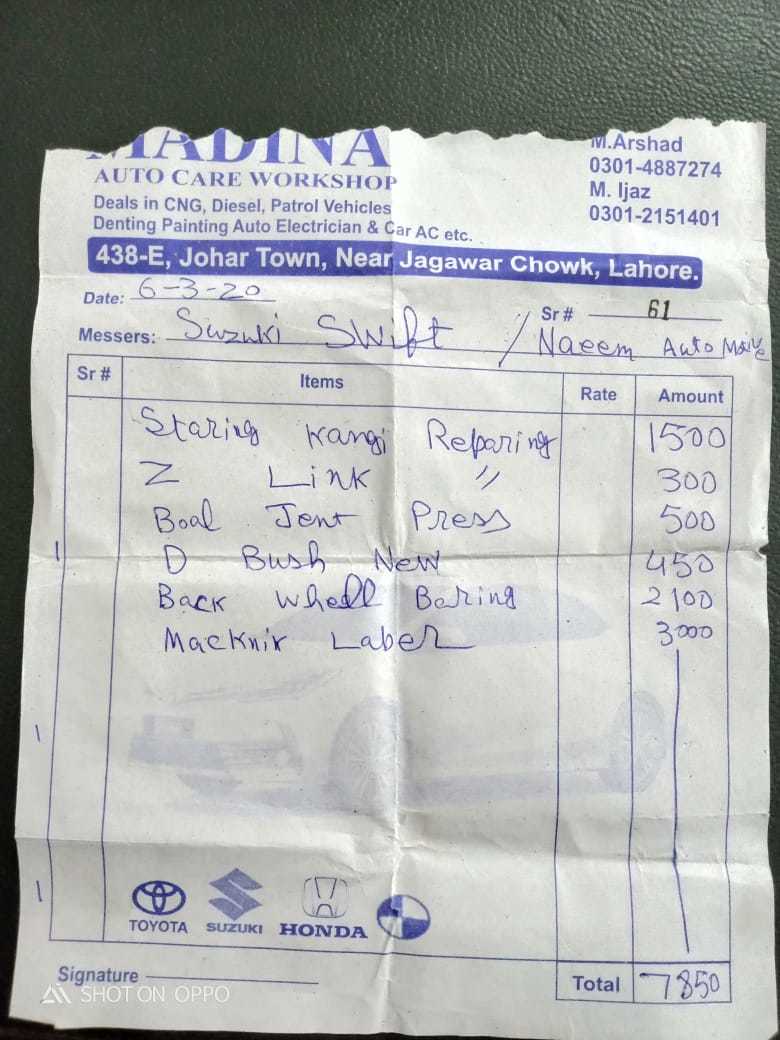 MADINA
AUTO CARE WORKSHOP
Deals in CNG, Diesel, Patrol Vehicles
Denting Painting Auto Electrician & Car AC etc.
M.Arshad
0301-4887274
M. Ijaz
0301-2151401
438-E, Johar Town, Near Jagawar Chowk, Lahore.
Date: 6-3-20
Sr # 61
Messers: Suzuki Swift / Naeem Auto
Sr # Items Rate Amount
Staring Kangi Reparing 1500
Z Link " 300
Boal Jent Press 500
D Bush New 450
Back Wheel Baring 2100
Macknir Laber 3000
TOYOTA SUZUKI HONDA
Signature
Total 7850
SHOT ON OPPO